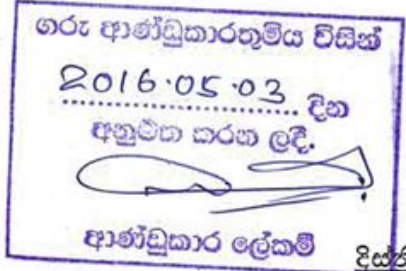 ගරු ආණ්ඩුකාරතුමිය විසින්
2016.05.03 දින
අනුමත කරන ලදී.
ආණ්ඩුකාර ලේකම්